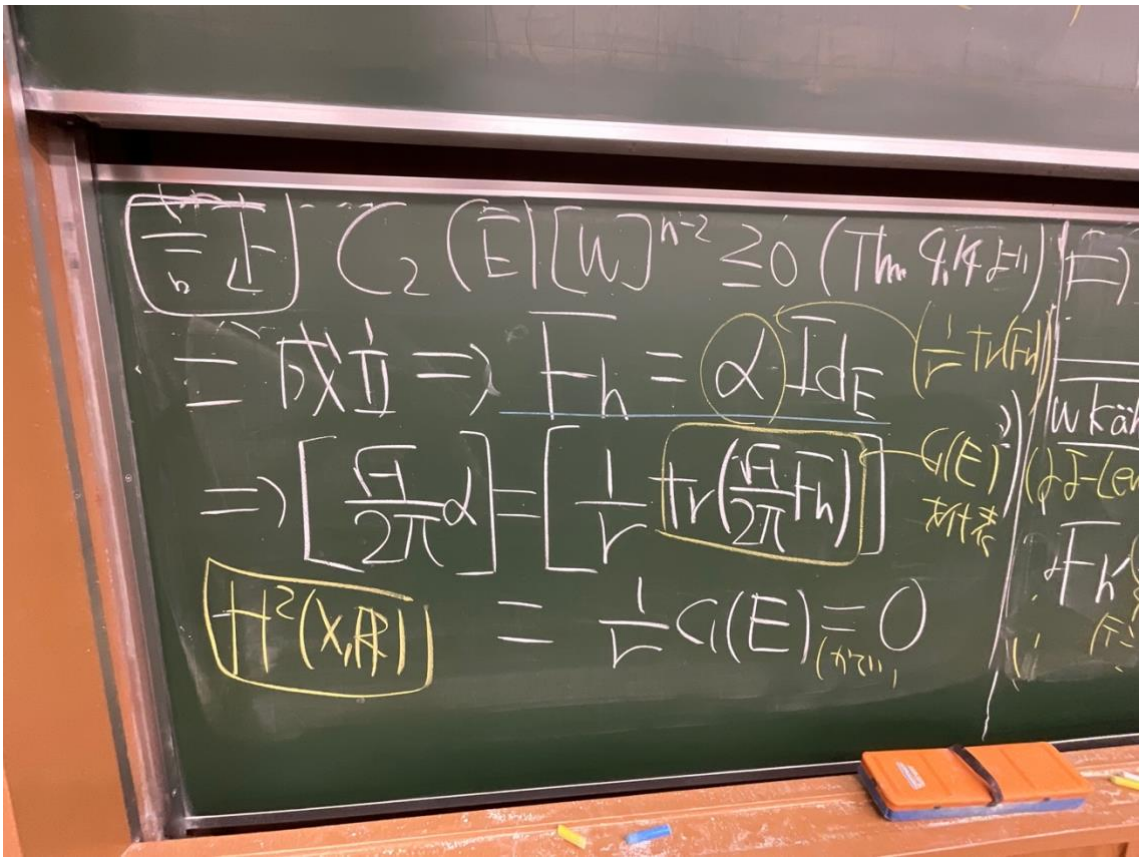 証 C₂(E)[W]ⁿ⁻² ≥ 0 (Thm 9.14 より)
= 成立 ⇒ F_h = α Id_E (1/r Tr(F_h))
⇒ [√-1/2π α] = [1/r tr(√-1/2π F_h)] C₁(E) 代表
H²(X,ℝ) = 1/r C₁(E) = 0 (かてい)
W käh
F_h